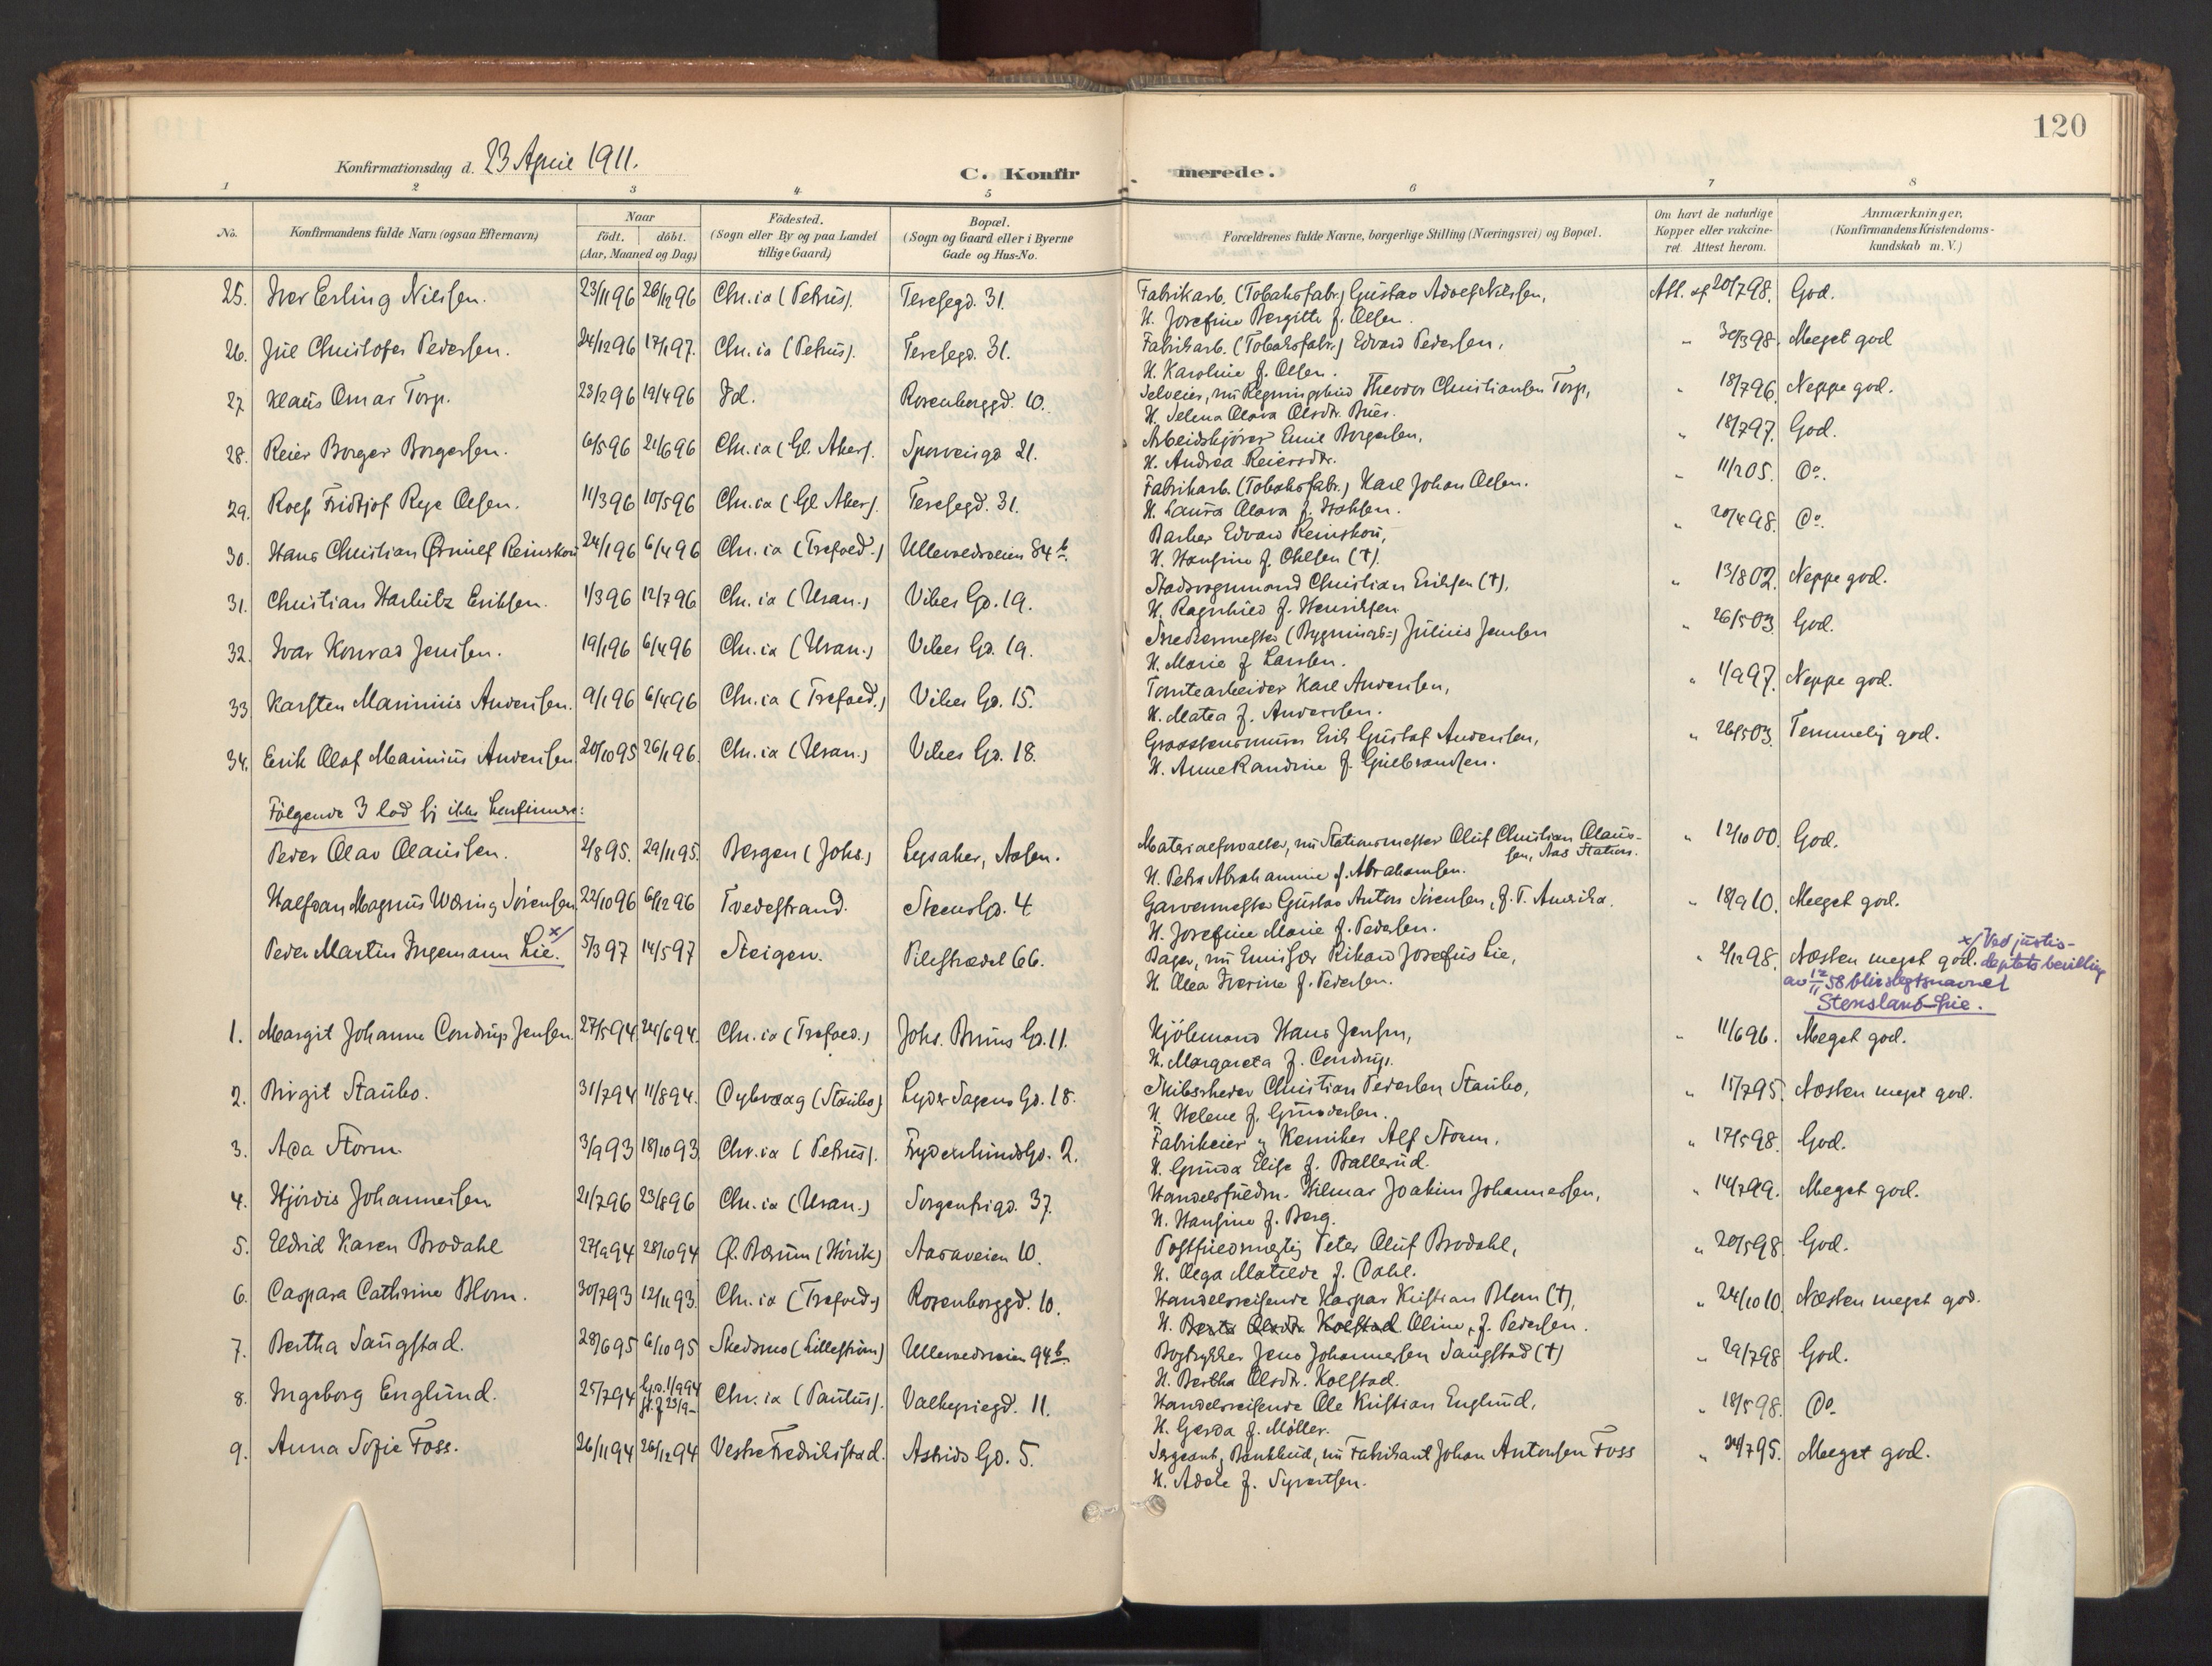 120
Konfirmationsdag d. 23 April 1911.
C. Konfirmerede.
1 2 3 4 5 6 7 8
No.
Konfirmandens fulde Navn (ogsaa Efternavn)
Naar
födt. döbt.
(Aar, Maaned og Dag)
Födested.
(Sogn eller By og paa Landet
tillige Gaard)
Bopæl.
(Sogn og Gaard eller i Byerne
Gade og Hus-No.
Forældrenes fulde Navne, borgerlige Stilling (Næringsvei) og Bopæl.
Om havt de naturlige
Kopper eller vakcine-
ret. Attest herom.
Anmærkninger.
(Konfirmandens Kristendoms-
kundskab m. V.)
25. Iver Erling Nilssen. 23/11 96 26/12 96 Chr.ia (Petrus). Teresegd. 31. Fabrikarb. (Tobaksfabr.) Gustav Adolf Nilssen, Att. af 20/7 98. God.
H. Josefine Bergitte f. Olsen.
26. Jul Christofer Pedersen. 24/12 96 17/1 97. Chr.ia (Petrus). Teresegd. 31. Fabrikarb. (Tobaksfabr.) Edvard Pedersen, " 30/3 98. Meget god
H. Karoline f. Olsen.
27 Klaus Omar Torp. 23/2 96 19/4 96 Id. Rosenborggd. 10. Selveier, nu Regningsbud Theodor Christiansen Torp, " 18/7 96. Neppe god.
H. Selena Olava Olsdtr. Bues.
28. Reier Borger Borgersen. 6/5 96 21/6 96 Chr.ia (Gl. Aker). Sporveisgd 21. Arbeidskjører Emil Borgersen, " 18/7 97. God.
H. Andrea Reiersdtr.
29. Rolf Fridtjof Reye Olsen. 11/3 96 10/5 96 Chr.ia (Gl Aker). Teresegd. 31. Fabrikarb. (Tobaksfabr.) Karl Johan Olsen. " 11/2 05. Do.
H. Laura Olava f. Isaksen.
30. Hans Christian Ørnulf Reinskou 24/1 96 6/4 96 Chr.ia (Trefold.) Ullevoldsveien 84 b. Barber Edvard Reinskou, " 20/4 98. Do.
H. Hansine f. Ohlsen (†).
31. Christian Harbitz Eriksen. 1/3 96 12/7 96 Chr.ia (Uran.) Vibes Gd. 19. Stadsvognmand Christian Eriksen (†), " 13/8 02. Neppe god.
H. Ragnhild f. Henriksen.
32. Ivar Konrad Jensen. 19/1 96 6/4 96 Chr.ia (Uran.) Vibes Gd. 19. Snedkermester (Bygnings-) Julius Jensen " 26/5 03. God.
H. Marie f Larsen.
33. Karsten Marinius Andersen. 9/1 96 6/4 96 Chr.ia (Trefold.) Vibes Gd. 15. Tomtearbeider Karl Andersen, " 1/9 97. Neppe god.
H. Matea f. Andersen.
34. Erik Olaf Marinius Andersen 20/10 95 26/1 96 Chr.ia (Uran.) Vibes Gd. 18. Graastensmurer Erik Gustaf Andersen, " 26/5 03. Temmelig god.
H. Anne Randine f. Gulbrandsen.
Følgende 3 lod sig ikke konfirmere:
Peder Olav Olaussen. 2/8 95. 29/11 95. Bergen (Johs.) Lysaker, Aasen. Materialforvalter, nu Stationsmester Oluf Christian Olaus- " 12/10 00. God.
sen, Aas Station.
H. Petra Abrahamine f. Abrahamsen.
Halfdan Magnus Waring Sørensen. 22/10 96 6/12 96 Tvedestrand. Stensgd. 4 Garvermester Gustav Anton Sørensen, f. T. Amerika. " 18/9 10. Meget god.
H. Josefine Marie f. Pedersen.
Peder Martin Ingemann Lie. x/ 5/3 97 14/5 97 Steigen. Pilestrædet 66. Bager, nu Emissær Rikard Josefus Lie, " 2/12 98. Næsten meget god. x/ Ved justis-
deptets bevilling
av 12/11 58 blir slegtsnavnet
Stensland-Lie.
H. Olea Iverine f. Pedersen.
1. Margit Johanne Condrup Jensen. 27/5 94 24/6 94. Chr.ia (Trefold.) Johs. Bruns Gd. 11. Kjölmand Hans Jensen, " 11/6 96. Meget god.
H. Margareta f. Condrup.
2. Birgit Staubo. 31/7 94 11/8 94. Dybvaag (Staubo) Lyder Sagens Gd. 18. Skibsreder Christian Pedersen Staubo, " 15/7 95. Næsten meget god.
H. Helene f. Gundersen.
3. Ada Storm. 3/9 93 18/10 93 Chr.ia (Petrus). Frydenlundsgd. 2. Fabrikeier og Kemiker Alf Storm, " 17/5 98. God.
H. Gunda Elise f. Ballerud.
4. Hjördis Johannessen 21/7 96 23/8 96 Chr.ia (Uran.) Sorgenfrigd. 37. Handelsfuldm. Hilmar Joakim Johannessen, " 14/7 99. Meget god.
H. Hansine f. Berg.
5. Eldrid Karen Brodahl 27/9 94 28/10 94 Ø. Bærum (Hövik) Aasaveien 10. Postfuldmægtig Peter Oluf Brodahl, " 20/5 98. God.
H. Olga Matilde f. Dahl.
6. Caspara Cathrine Blom. 30/7 93 12/11 93. Chr.ia (Trefold.) Rosenborggd. 10. Handelsreisende Kaspar Kristian Blom (†), " 24/10 10. Næsten meget god.
H. Berta Olsdtr. Kolstad Oline, f. Pedersen.
7. Bertha Saugstad. 28/6 95 6/10 95 Skedsmo (Lillestrøm) Ullevoldsveien 94 b. Bogtrykker Jens Johannessen Saugstad (†) " 29/7 98 God.
H. Bertha Olsdtr. Kolstad.
8. Ingeborg Englund. 25/7 94 hj.d. 1/9 94 st. f 23/9 - Chr.ia (Paulus). Valkyriegd. 11. Handelsreisende Ole Kristian Englund, " 18/5 98. Do.
H. Gerda f. Möller.
9. Anna Sofie Foss. 26/11 94 26/12 94 Vestre Fredrikstad. Astrids Gd. 5. Sergeant, Bankbud, nu Fabrikant Johan Antonsen Foss " 24/7 95. Meget god.
H. Adele f. Syvertsen.